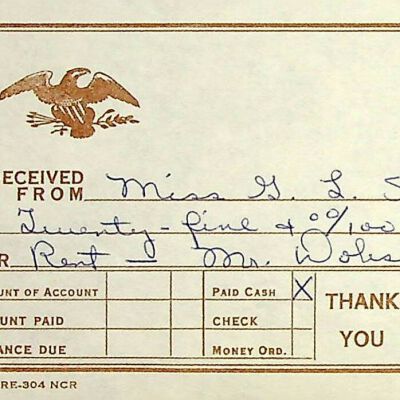 ECEIVED
FROM Miss G. L. S
Twenty-five & 00/100
R Rent — Mr.
UNT OF ACCOUNT PAID CASH X THANK
UNT PAID CHECK YOU
ANCE DUE MONEY ORD.
RE-304 NCR